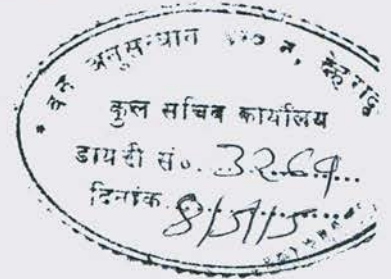 * वन अनुसन्धान संस्थान, देहरादून
कुल सचिव कार्यालय
डायरी सं०. 3264...
दिनांक. 8/5/15